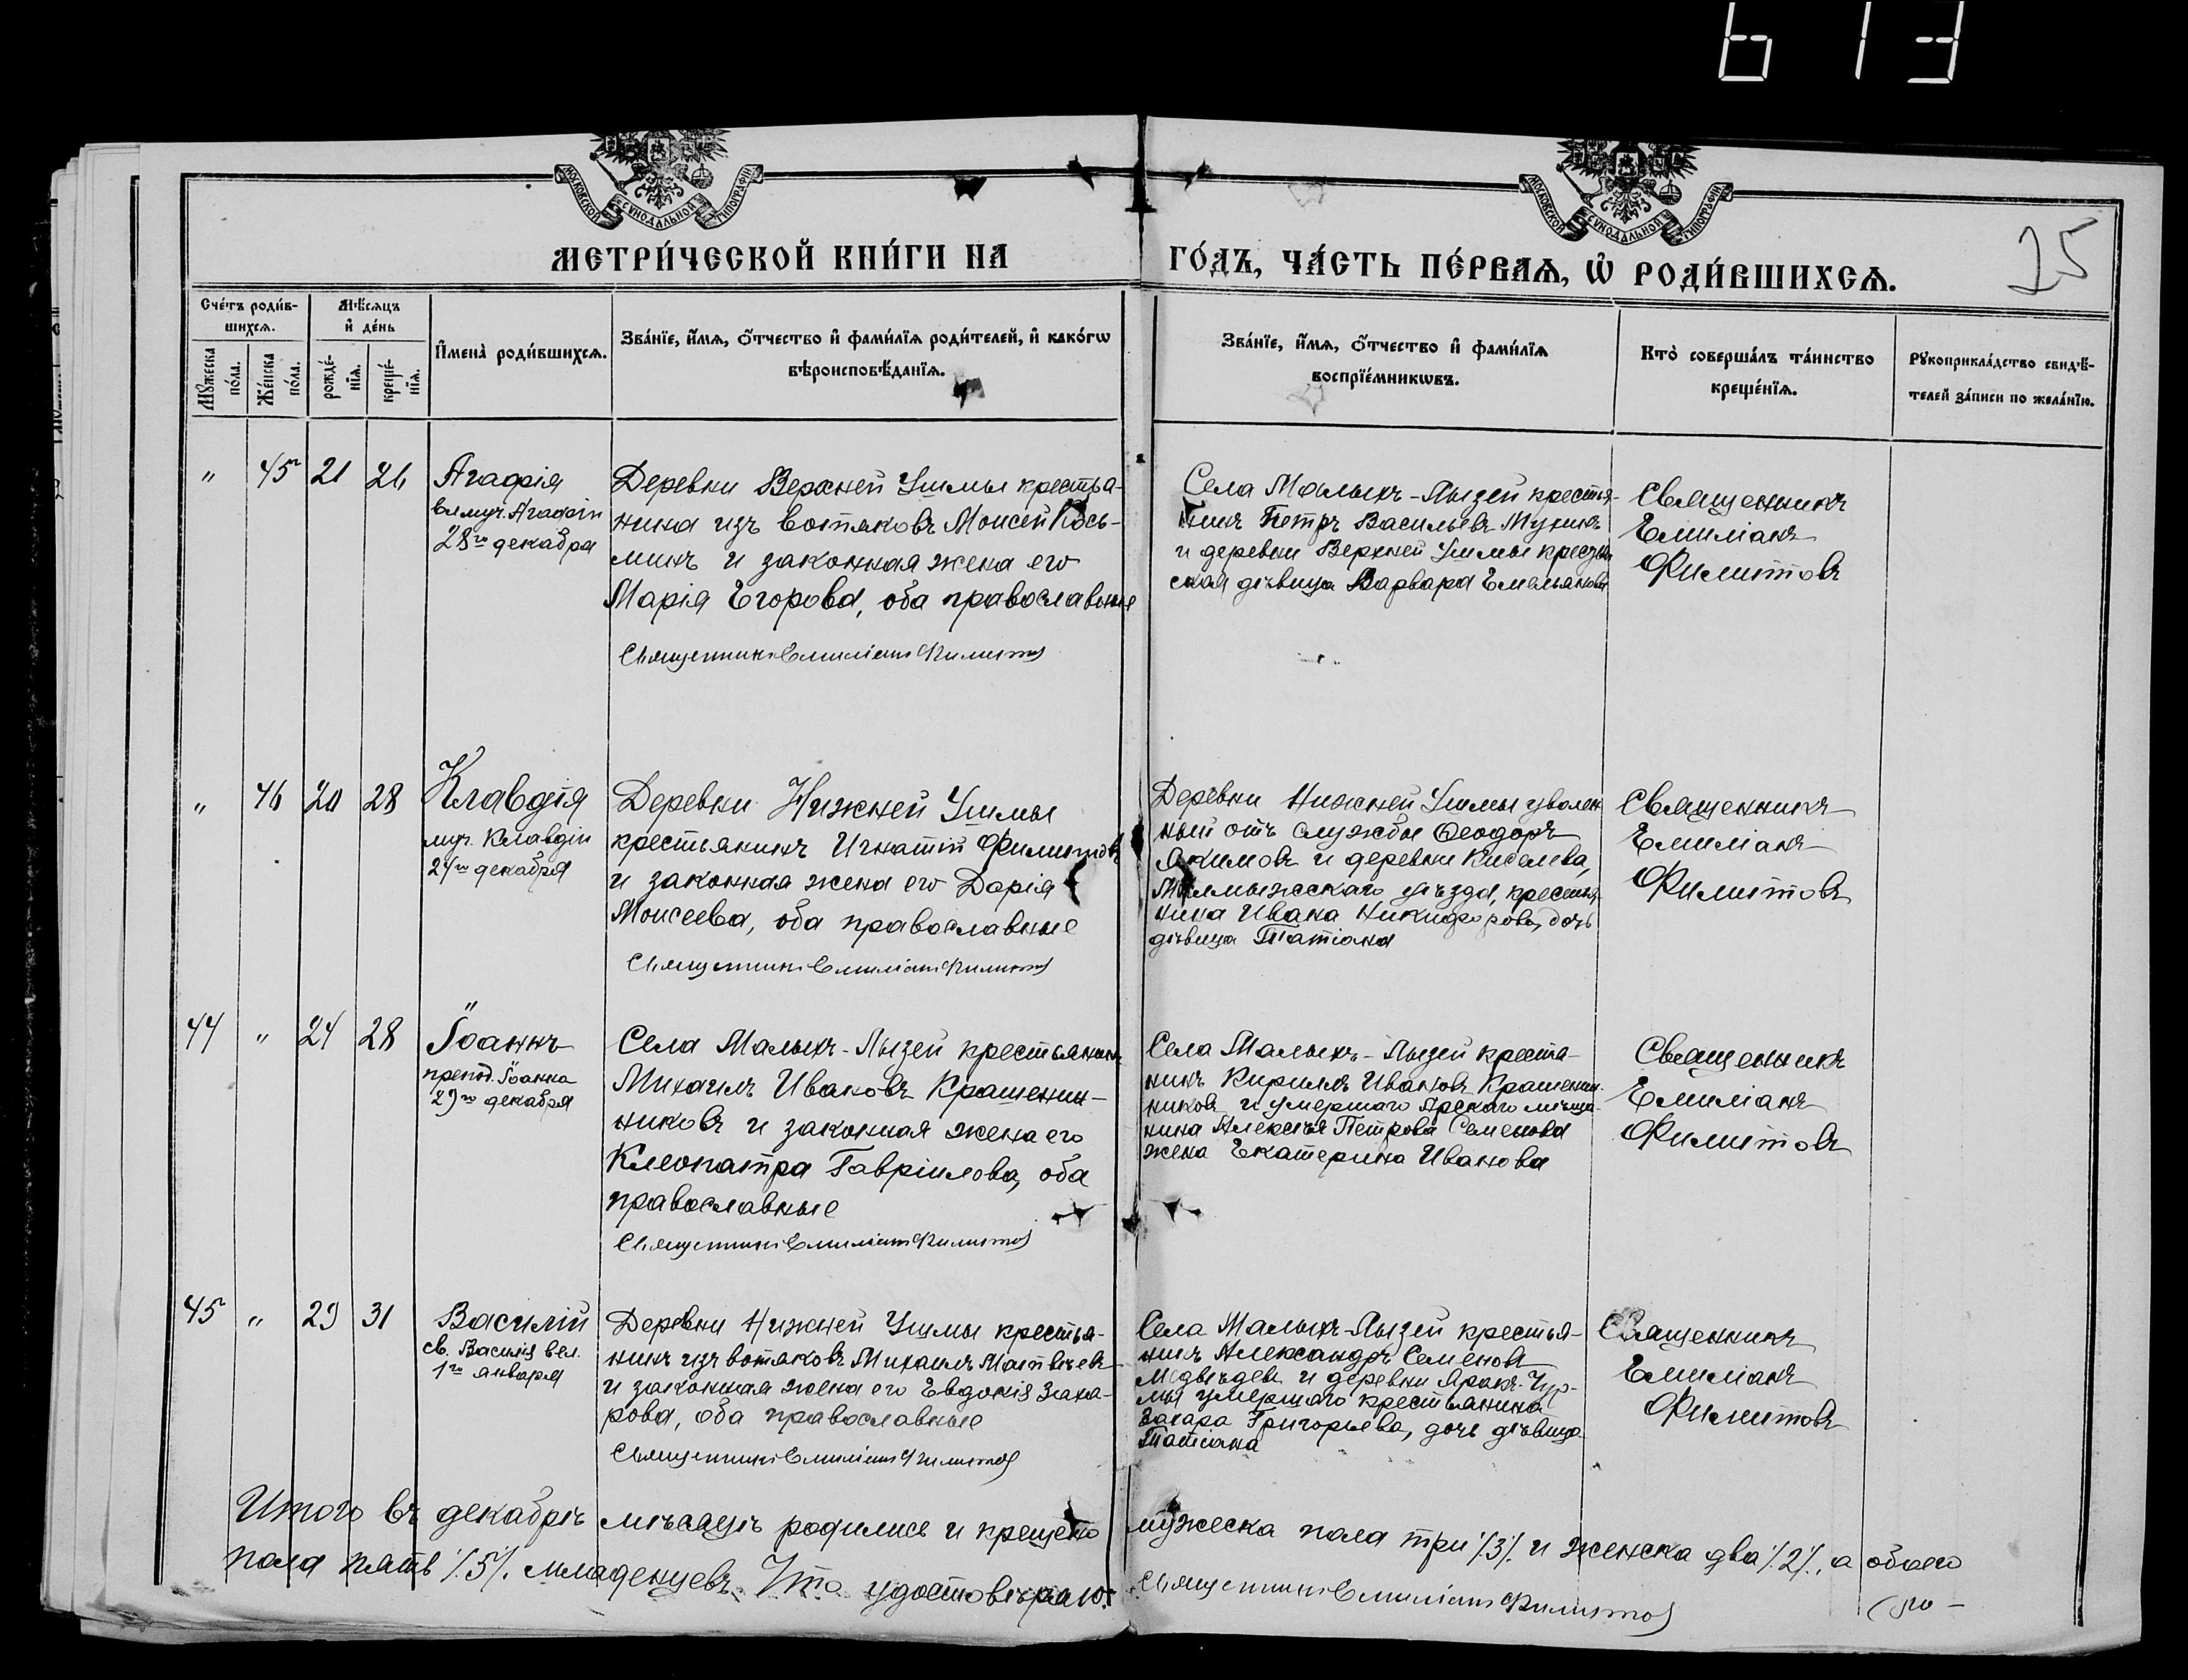 613
МОСКОВСКОЙ СѴНОДАЛЬНОЙ ТИПОГРАФІИ
МОСКОВСКОЙ СѴНОДАЛЬНОЙ ТИПОГРАФІИ
МЕТРИ́ЧЕСКОЙ КНИ́ГИ НА ГО́ДЪ, ЧА́СТЬ ПЕ́РВАѦ, Ѡ҆ РОДИ́ВШИХСѦ.
25
Сче́тъ роди́в-
шихсѧ.
Мѣ́сѧцъ
и҆ де́нь
Мꙋ́жеска
по́ла.
Же́нска
по́ла.
рожде́-
нїѧ.
креще́-
нїѧ.
И҆мена̀ роди́вшихсѧ.
Зва́нїе, и҆́мѧ, ѻ҆́тчество и҆ фами́лїѧ роди́телей, и҆ како́гѡ
вѣроисповѣ́данїѧ.
Зва́нїе, и҆́мѧ, ѻ҆́тчество и҆ фами́лїѧ
воспрїе́мникѡвъ.
Кто̀ соверша́лъ та́инство
креще́нїѧ.
Рꙋкоприкла́дство свидѣ́-
телей за́писи по жела́нїю.
" 45 21 26
Агафія
вел муч. Агафіи
28го декабря
Деревни Верхней Ушмы крестья-
нина изъ вотяковъ Моисей Кось-
минъ и законная жена его
Марія Егорова, оба православные
Священникъ Емиліанъ Филитовъ
Села Малыхъ-Лызей крестья-
нинъ Петръ Васильевъ Мухинъ
и деревни Верхней Ушмы крестьян
ская дѣвица Варвара Емельянова
Священникъ
Емиліанъ
Филитовъ
" 46 20 28
Клавдія
муч. Клавдіи
24го декабря
Деревни Нижней Ушмы
крестьянинъ Игнатій Филитовъ
и законная жена его Дарія
Моисеева, оба православные
Священникъ Емиліанъ Филитовъ
Деревни Нижней Ушмы уволен
ный отъ службы Ѳеодоръ
Якимовъ и деревни Киселева,
Малмыжскаго уѣзда, крестья
нина Ивана Никифорова, дочь
дѣвица Татіана
Священникъ
Емиліанъ
Филитовъ
44 " 24 28
Іоаннъ
препод. Іоанна
29го декабря
Села Малыхъ-Лызей крестьянинъ
Михаилъ Ивановъ Крашенин-
никовъ и законная жена его
Клеопатра Гавріилова, оба
православные
Священникъ Емиліанъ Филитовъ
Села Малыхъ-Лызей крестья-
нинъ Кириллъ Ивановъ Крашенин-
никовъ и умершаго Арскаго мѣща-
нина Алексѣя Петрова Семенова
жена Екатерина Иванова
Священникъ
Емиліанъ
Филитовъ
45 " 29 31
Василій
св. Василія вел.
1го января
Деревни Нижней Ушмы крестья-
нинъ изъ вотяковъ Михаилъ Матвѣевъ
и законная жена его Евдокія Заха-
рова, оба православные
Священникъ Емиліанъ Филитовъ
Села Малыхъ-Лызей крестья-
нинъ Александръ Семеновъ
Медвѣдевъ и деревни Аракъ-Чур-
мы умершаго крестьянина
Захара Григорьева, дочь дѣвица
Татіана
Священникъ
Емиліанъ
Филитовъ
Итого въ декабрѣ мѣсяцѣ родились и крещено мужеска пола три /3/. и женска два /2/., а обоего
пола пять /5/. младенцевъ. Что удостовѣряю: Священникъ Емиліанъ Филитовъ